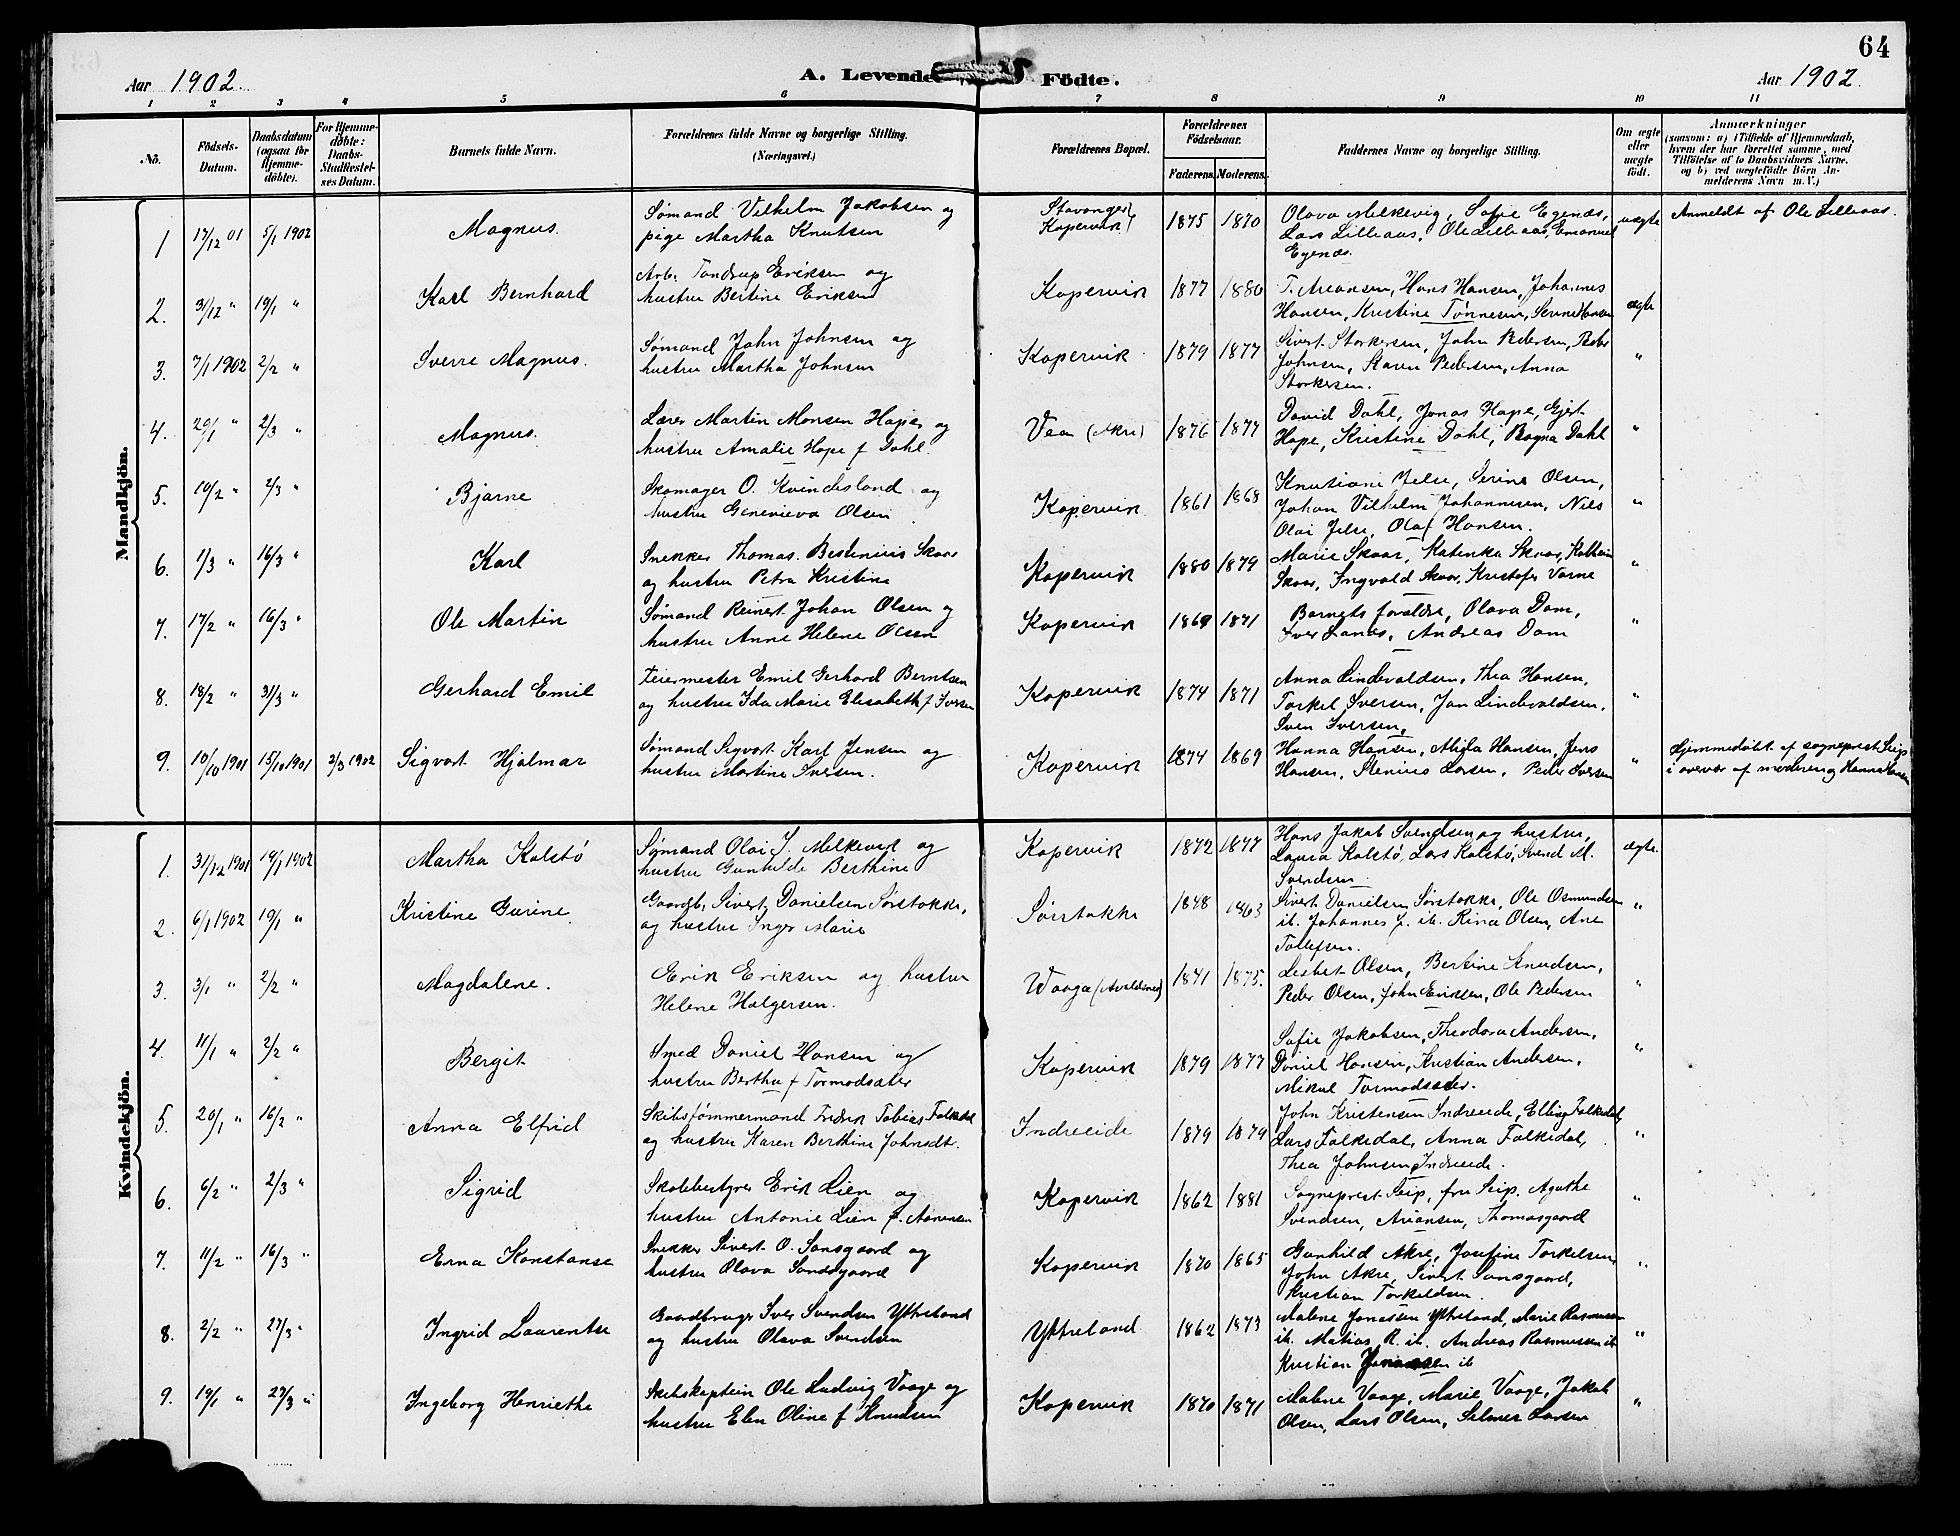 64
Aar 1902.
A. Levende Födte.
Aar 1902.
1 2 3 4 5 6 7 8 9 10 11
No.
Födsels-Datum.
Daabsdatum (ogsaa for Hjemme-döbte).
For Hjemme-döbte: Daabs-Stadfæstel-ses Datum.
Barnets fulde Navn.
Forældrenes fulde Navne og borgerlige Stilling.
(Næringsvei.)
Forældrenes Bopæl.
Forældrenes Födselsaar.
Faderens. Moderens.
Faddernes Navne og borgerlige Stilling.
Om ægte eller uægte födt.
Anmærkninger
(saasom: a) i Tilfælde af Hjemmedaab, hvem der har forrettet samme, med Tilföielse af to Daabsvidners Navne, og b) ved uægtefödte Börn An-melderens Navn m. V.)
Mandkjön.
1 17/12 01 5/1 1902 Magnus. Sømand Vilhelm Jakobsen og
pige Martha Knutsen
Stavanger
Kopervik
1875 1870 Olava Melkevig, Sofie Egenæs,
Lars Lilleaas, Ole Lilleaas, Emanuel
Egenæs.
uægte Anmeldt af Ole Lilleaas.
2. 31/12 " 19/1 " Karl Bernhard Arb. Tandrup Eriksen og
hustru Bertine Eriksen
Kopervik 1877 1880 T. Areansen, Hans Hansen, Johannes
Hansen, Kristine Tønnesen, Serine Hansen
ægte
3. 7/1 1902 2/2 " Sverre Magnus. Sømand John Johnsen og
hustru Martha Johnsen
Kopervik 1879 1877 Sivert Storkersen, John Pedersen, Peder
Johnsen, Karen Pedersen, Anna
Storkersen.
"
4. 29/1 " 2/3 " Magnus. Lærer Martin Monsen Hope og
hustru Amalie Hope f Dahl.
Vea (Akre) 1876 1877 David Dahl, Jonas Hope, Gjert
Hope, Kristine Dahl, Ragna Dahl
"
5. 10/2 " 2/3 " Bjarne Skomager O. Kvindesland og
hustru Genevieva Olsen
Kopervik 1861 1868 Knutiane Jelse, Serine Olsen,
Johan Vilhelm Johannesen, Nils
Olai Jelse, Olaf Hansen.
"
6. 1/3 " 16/3 " Karl Snekker Thomas Skaar
og hustru Petra Kristine
Kopervik 1880 1879 Marie Skaar, Katinka Skaar,
Skaar, Ingvald Skaar, Kristofer Varne
"
7. 17/2 " 16/3 " Ole Martin Sømand Reinert Johan Olsen og
hustru Anne Helene Olsen
Kopervik 1869 1871 Barnets forældre, Olava Dam,
Iver Lanes, Andreas Dam
"
8. 18/2 " 31/3 " Gerhard Emil Feiermester Emil Gerhard Berntsen
og hustru Ida Marie Elisabeth f Iversen
Kopervik 1874 1871 Anna Lindevaldsen, Thea Hansen,
Torkel Iversen, Jan Lindevaldsen,
Sven Iversen,
"
9. 10/10 1901 15/10 1901 2/3 1902 Sigvart Hjalmar Sømand Sigvart Karl Jensen og
hustru Martine Iversen.
Kopervik 1874 1869 Hanna Hansen, Mida Hansen, Jens
Hansen, Stenius Larsen, Peder Iversen
" Hjemmedøbt af sogneprest Seip
i overvær af moderen og Hanna Hansen
Kvindekjön.
1. 31/12 1901 19/1 1902 Martha Kalstø Sømand Olai J. Melkevik og
hustru Gunhilde Berthine
Kopervik 1872 1877 Hans Jakob Svendsen og hustru,
Laura Kalstø, Lars Kalstø, Svend M.
Svendsen
ægte.
2. 6/1 1902 19/1 " Kristine Gurine. Gaardb. Sivert Danielsen Sørstokke,
og hustru Inger Marie
Sørstokke 1848 1863 Sivert Danielsen Sørstokke, Ole Osmundsen
ib. Johannes J. ib. Rina Olsen, Ane
Tollefsen.
"
3. 3/1 " 2/2 " Magdalene. Erik Eriksen og hustru
Helene Holgersen.
Vaaga (Avaldsnes) 1871 1875. Lisbet Olsen, Bertine Knudsen,
Peder Olsen, John Eriksen, Ole Pedersen
"
4. 11/1 " 2/2 " Bergit Smed Daniel Hansen og
hustru Bertha f Tormodsæter
Kopervik 1879 1877 Sofie Jakobsen, Theodora Andersen,
Daniel Hansen, Kristian Andersen,
Mikal Tormodsæter.
"
5. 20/1 " 16/2 " Anna Elfrid Skibstømmermand Fredrik Tobias Falkedal
og hustru Karen Berthine Johnsdt.
Indreeide 1879 1879 John Kristensen Indreeide, Elling Falkedal,
Lars Falkedal, Anna Falkedal,
Thea Johnsen Indreeide.
"
6. 6/2 " 2/3 " Sigrid Skolebestyrer Erik Lien og
hustru Antonie Lien f. Aanensen
Kopervik 1862 1881 Sogneprest Seip, fru Seip, Agathe
Svendsen, Areansen, Thomasgaard
"
7. 11/2 " 16/3 " Erna Konstanse Snekker Sivert O. Sansgaard og
hustru Olava Sandsgaard
Kopervik 1870 1865 Gunhild Akre, Josefine Torkelsen,
John Akre, Sivert Sansgaard,
Kristian Torkildsen.
"
8. 2/2 " 27/3 " Ingrid Laurentse Gaardbruger Iver Svendsen Ytreland
og hustru Olava Svendsen
Ytreland 1862 1873 Malene Jonassen Ytreland, Marie Rasmussen
ib. Matias R. ib. Andreas Rasmussen ib
Kristian Jonassen ib
"
9. 19/1 " 27/3 " Ingeborg Henriethe Skibskaptein Ole Ludvig Vaage og
hustru Elen Oline f Knudsen
Kopervik 1870 1871 Malene Vaage, Marie Vaage, Jakob
Olsen, Lars Olsen, Selmer Larsen
"